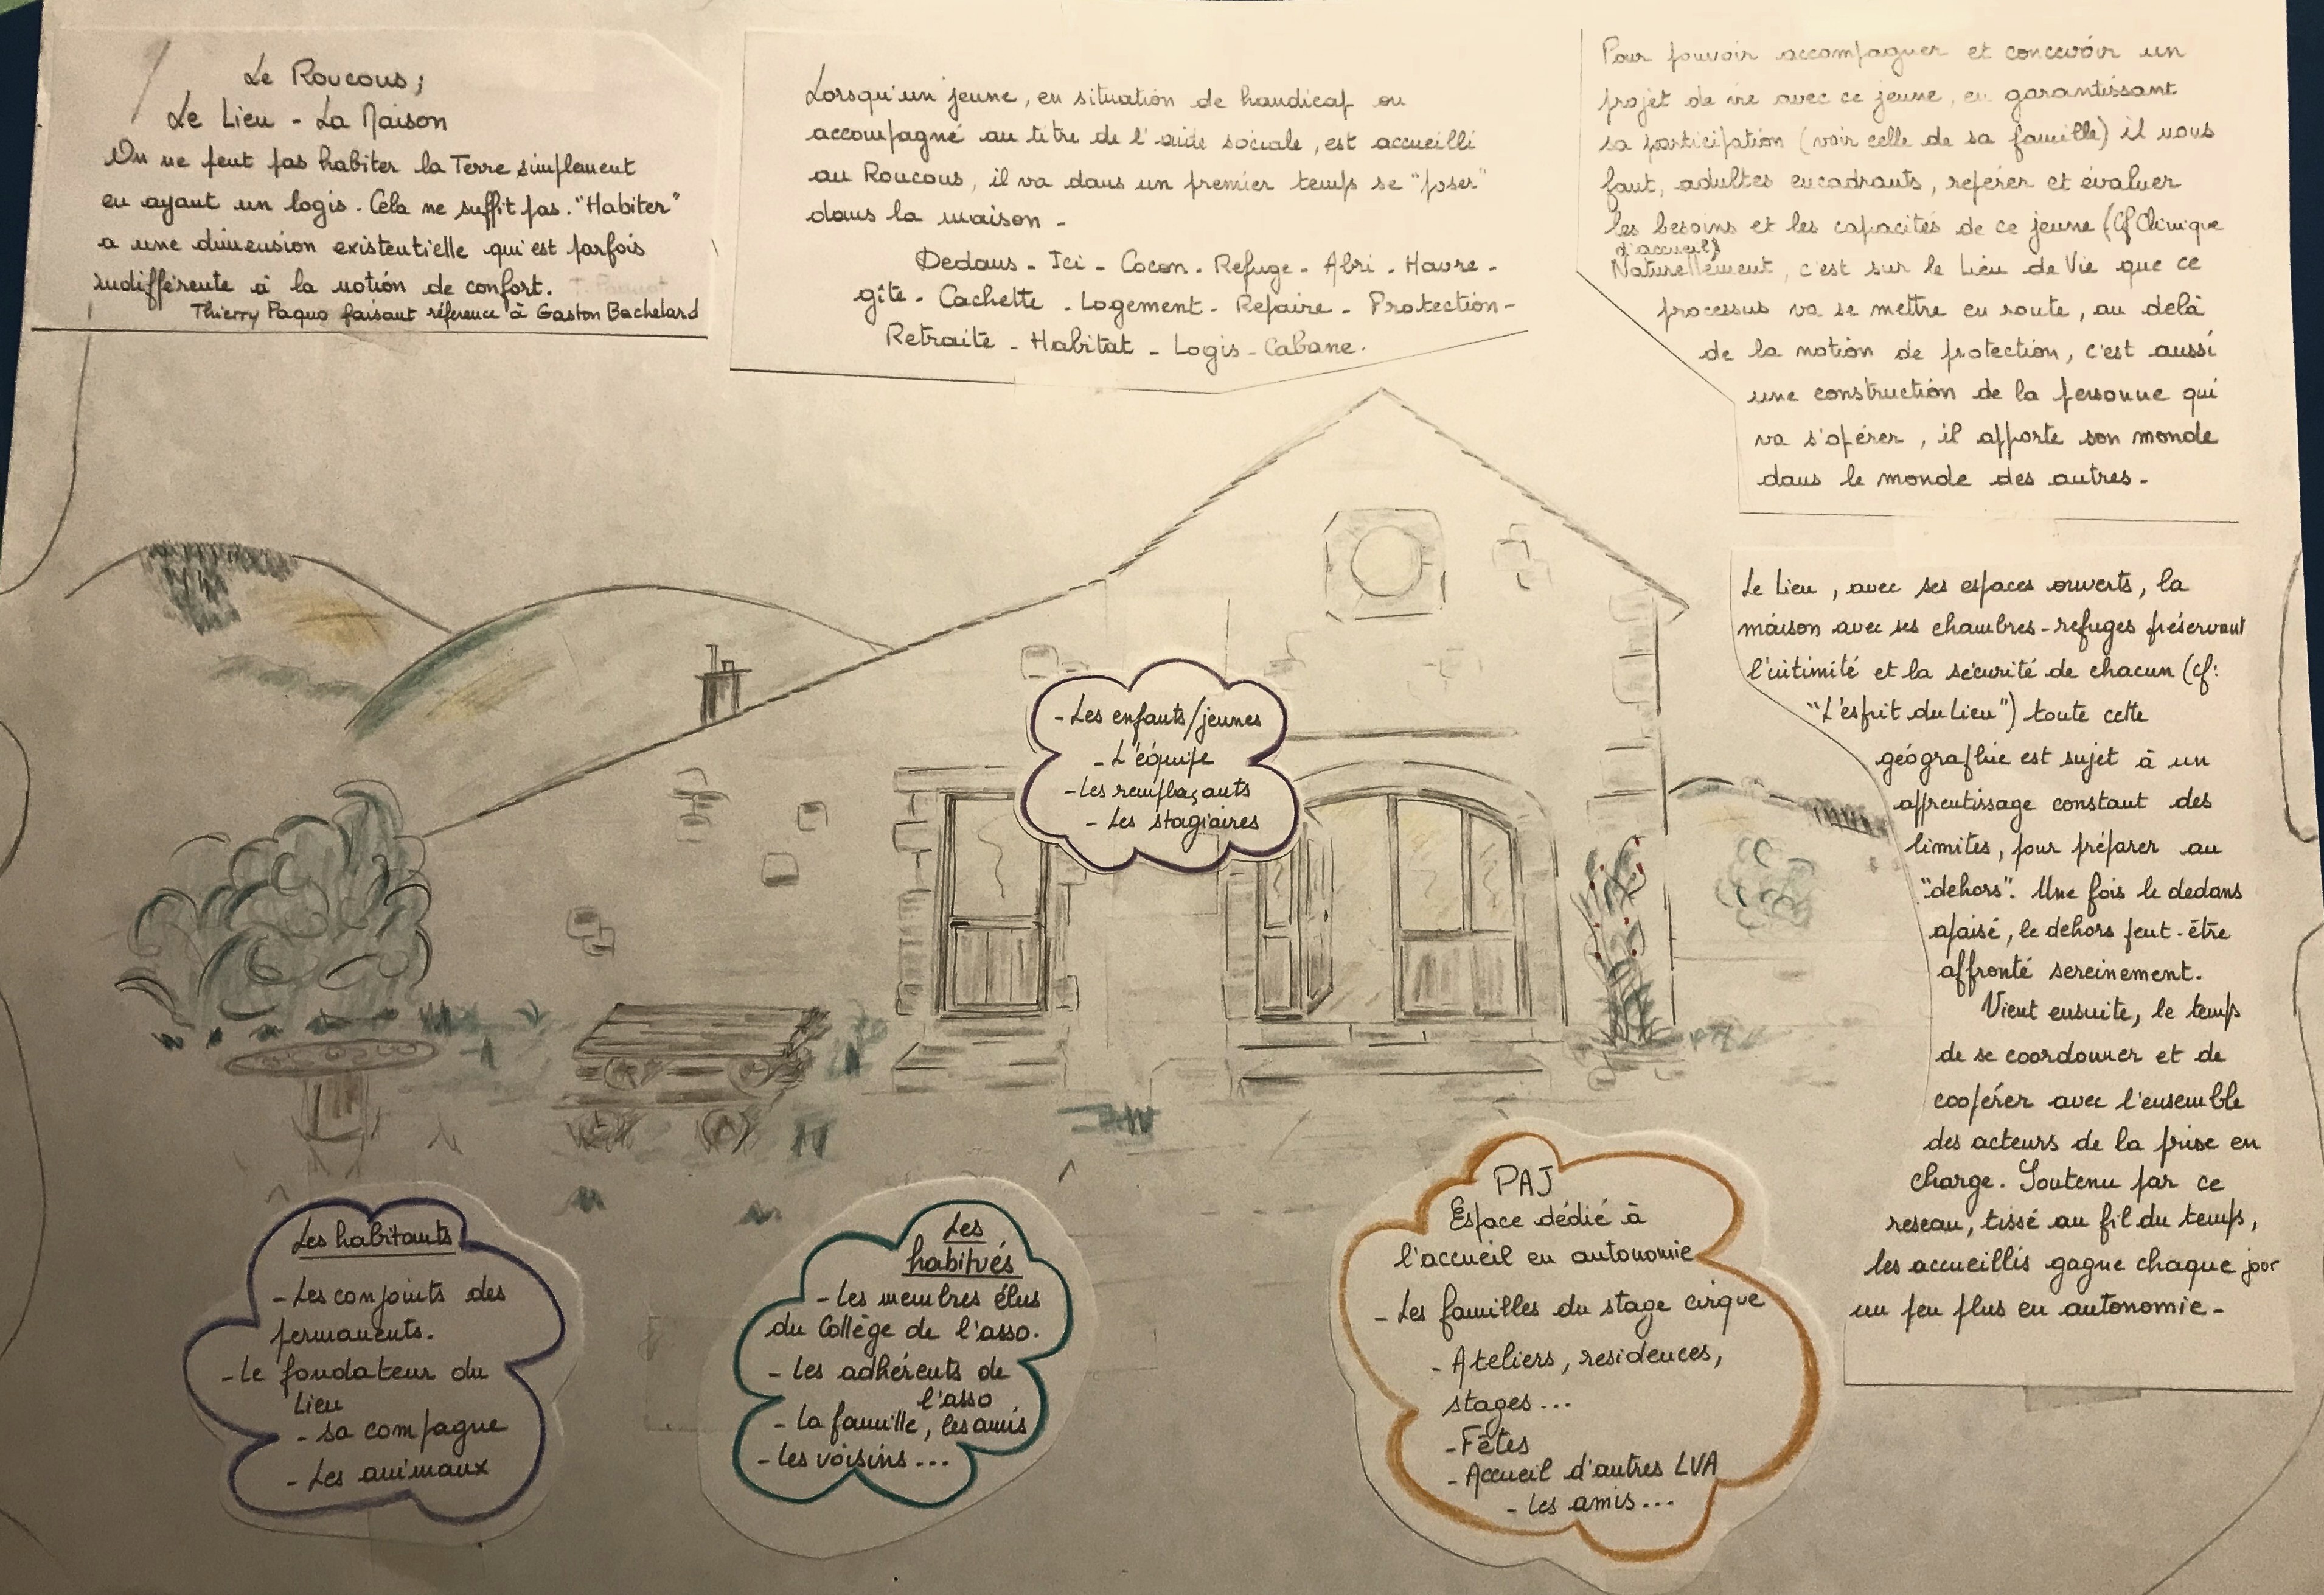 Le Roucous ;
Le Lieu - La Maison
On ne peut pas habiter la Terre simplement
en ayant un logis. Cela ne suffit pas. "Habiter"
a une dimension existentielle qui est parfois
indifférente à la notion de confort.
Thierry Paquo faisant référence à Gaston Bachelard
Lorsqu'un jeune, en situation de handicap ou
accompagné au titre de l'aide sociale, est accueilli
au Roucous, il va dans un premier temps se "poser"
dans la maison -
Dedans - Ici - Cocon - Refuge - Abri - Havre -
gîte - Cachette - Logement - Repaire - Protection -
Retraite - Habitat - Logis - Cabane.
Pour pouvoir accompagner et concevoir un
projet de vie avec ce jeune, en garantissant
sa participation (voir celle de sa famille) il nous
faut, adultes encadrants, repérer et évaluer
les besoins et les capacités de ce jeune (Cf Clinique
d'accueil)
Naturellement, c'est sur le Lieu de Vie que ce
processus va se mettre en route, au delà
de la notion de protection, c'est aussi
une construction de la personne qui
va s'opérer, il apporte son monde
dans le monde des autres -
Le Lieu, avec ses espaces ouverts, la
maison avec ses chambres-refuges préservant
l'intimité et la sécurité de chacun (cf:
"L'esprit du Lieu") toute cette
géographie est sujet à un
apprentissage constant des
limites, pour préparer au
"dehors". Une fois le dedans
apaisé, le dehors peut-être
affronté sereinement.
Vient ensuite, le temps
de se coordonner et de
coopérer avec l'ensemble
des acteurs de la prise en
charge. Soutenu par ce
reseau, tissé au fil du temps,
les accueillis gagne chaque jour
un peu plus en autonomie -
- Les enfants/jeunes
- L'équipe
- Les remplaçants
- Les stagiaires
Les habitants
- Les conjoints des
permanents.
- Le fondateur du
Lieu
- Sa compagne
- Les animaux
Les
habitués
- Les membres élus
du Collège de l'asso.
- Les adhérents de
l'asso
- La famille, les amis
- Les voisins ...
PAJ
Espace dédié à
l'accueil en autonomie
- Les familles du stage cirque
- Ateliers, residences,
stages ...
- Fêtes
- Accueil d'autres LVA
- Les amis ...